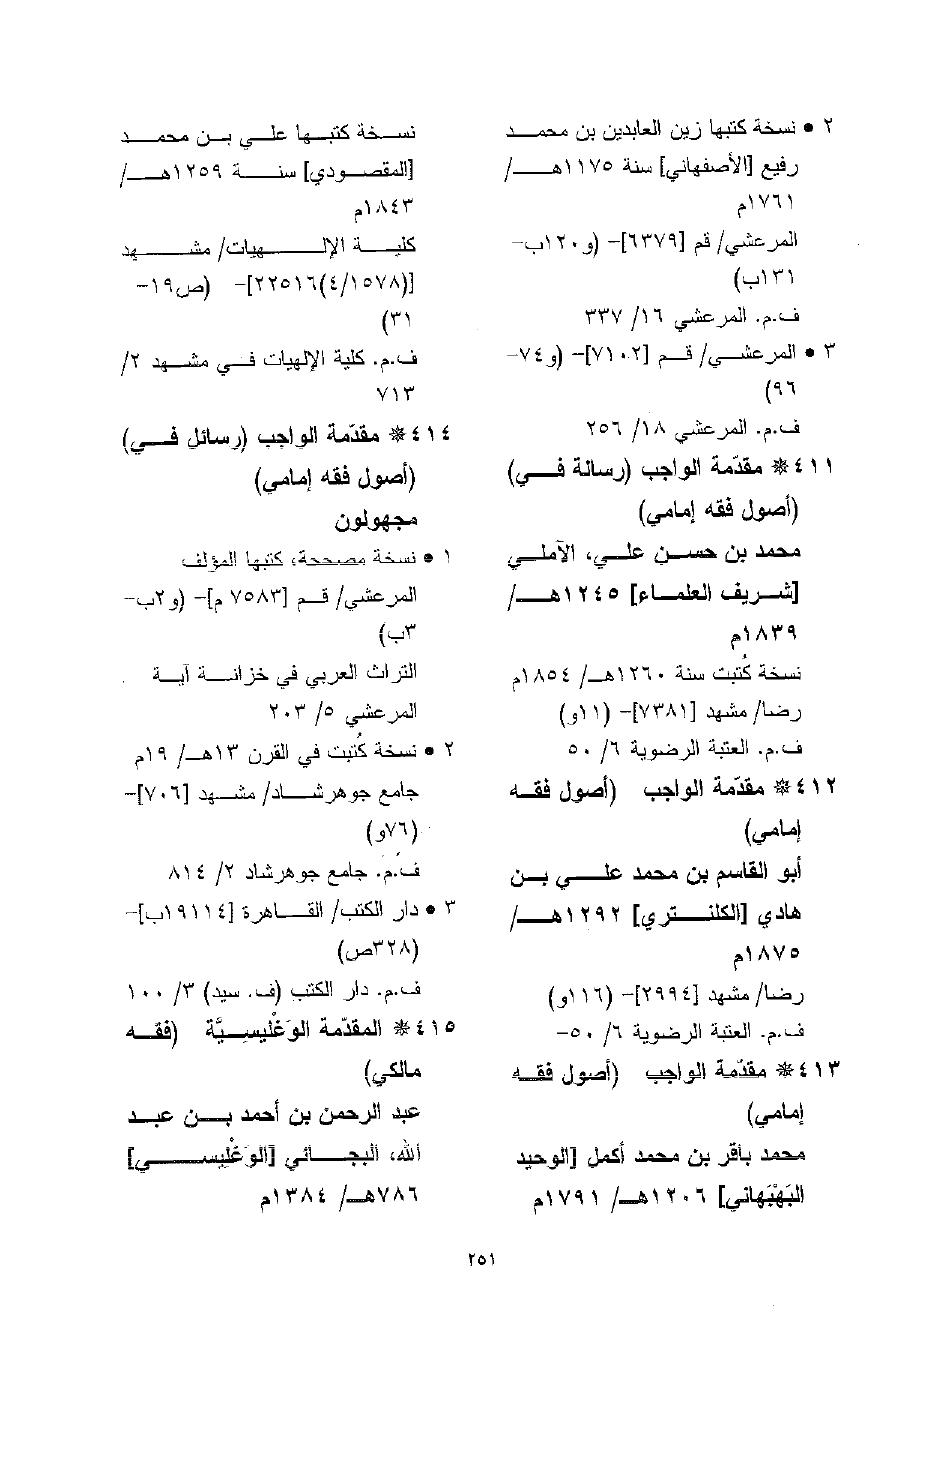 ٢ • نسخة كتبها زين العابدين بن محمد
رفيع [الأصفهاني] سنة ١١٧٥هـ/
١٧٦١م
المرعشي/ قم [٦٣٧٩]- (و١٢٠ب-
١٣١ب)
ف.م. المرعشي ١٦/ ٣٣٧
٣ • المرعشي/ قم [٧١٠٢]- (و٧٤-
٩٦)
ف.م. المرعشي ١٨/ ٢٥٦
٤١١ * مقدّمة الواجب (رسالة في)
(أصول فقه إمامي)
محمد بن حسن علي، الآملي
[شريف العلماء] ١٢٤٥هـ/
١٨٣٩م
نسخة كُتبت سنة ١٢٦٠هـ/ ١٨٥٤م
رضا/ مشهد [٧٣٨١]- (١١و)
ف.م. العتبة الرضوية ٦/ ٥٠
٤١٢ * مقدّمة الواجب (أصول فقه
إمامي)
أبو القاسم بن محمد علي بن
هادي [الكلنتري] ١٢٩٢هـ/
١٨٧٥م
رضا/ مشهد [٢٩٩٤]- (١١٦و)
ف.م. العتبة الرضوية ٦/ ٥٠-
٤١٣ * مقدّمة الواجب (أصول فقه
إمامي)
محمد باقر بن محمد أكمل [الوحيد
البَهْبَهاني] ١٢٠٦هـ/ ١٧٩١م
نسخة كتبها علي بن محمد
[المقصودي] سنة ١٢٥٩هـ/
١٨٤٣م
كلية الإلهيات/ مشهد
[(٤/١٥٧٨)٢٢٥١٦]- (ص١٩-
٣١)
ف.م. كلية الإلهيات في مشهد ٢/
٧١٣
٤١٤ * مقدّمة الواجب (رسائل في)
(أصول فقه إمامي)
مجهولون
١ • نسخة مصححة، كتبها المؤلف
المرعشي/ قم [٧٥٨٣ م]- (و٢ب-
٣ب)
التراث العربي في خزانة آية
المرعشي ٥/ ٢٠٣
٢ • نسخة كُتبت في القرن ١٣هـ/ ١٩م
جامع جوهرشاد/ مشهد [٧٠٦]-
(٧٦و)
ف.م. جامع جوهرشاد ٢/ ٨١٤
٣ • دار الكتب/ القاهرة [١٩١١٤ب]-
(٣٢٨ص)
ف.م. دار الكتب (ف. سيد) ٣/ ١٠٠
٤١٥ * المقدّمة الوَغْليسِيَّة (فقه
مالكي)
عبد الرحمن بن أحمد بن عبد
الله، البجائي [الوَغْليسي]
٧٨٦هـ/ ١٣٨٤م
٢٥١